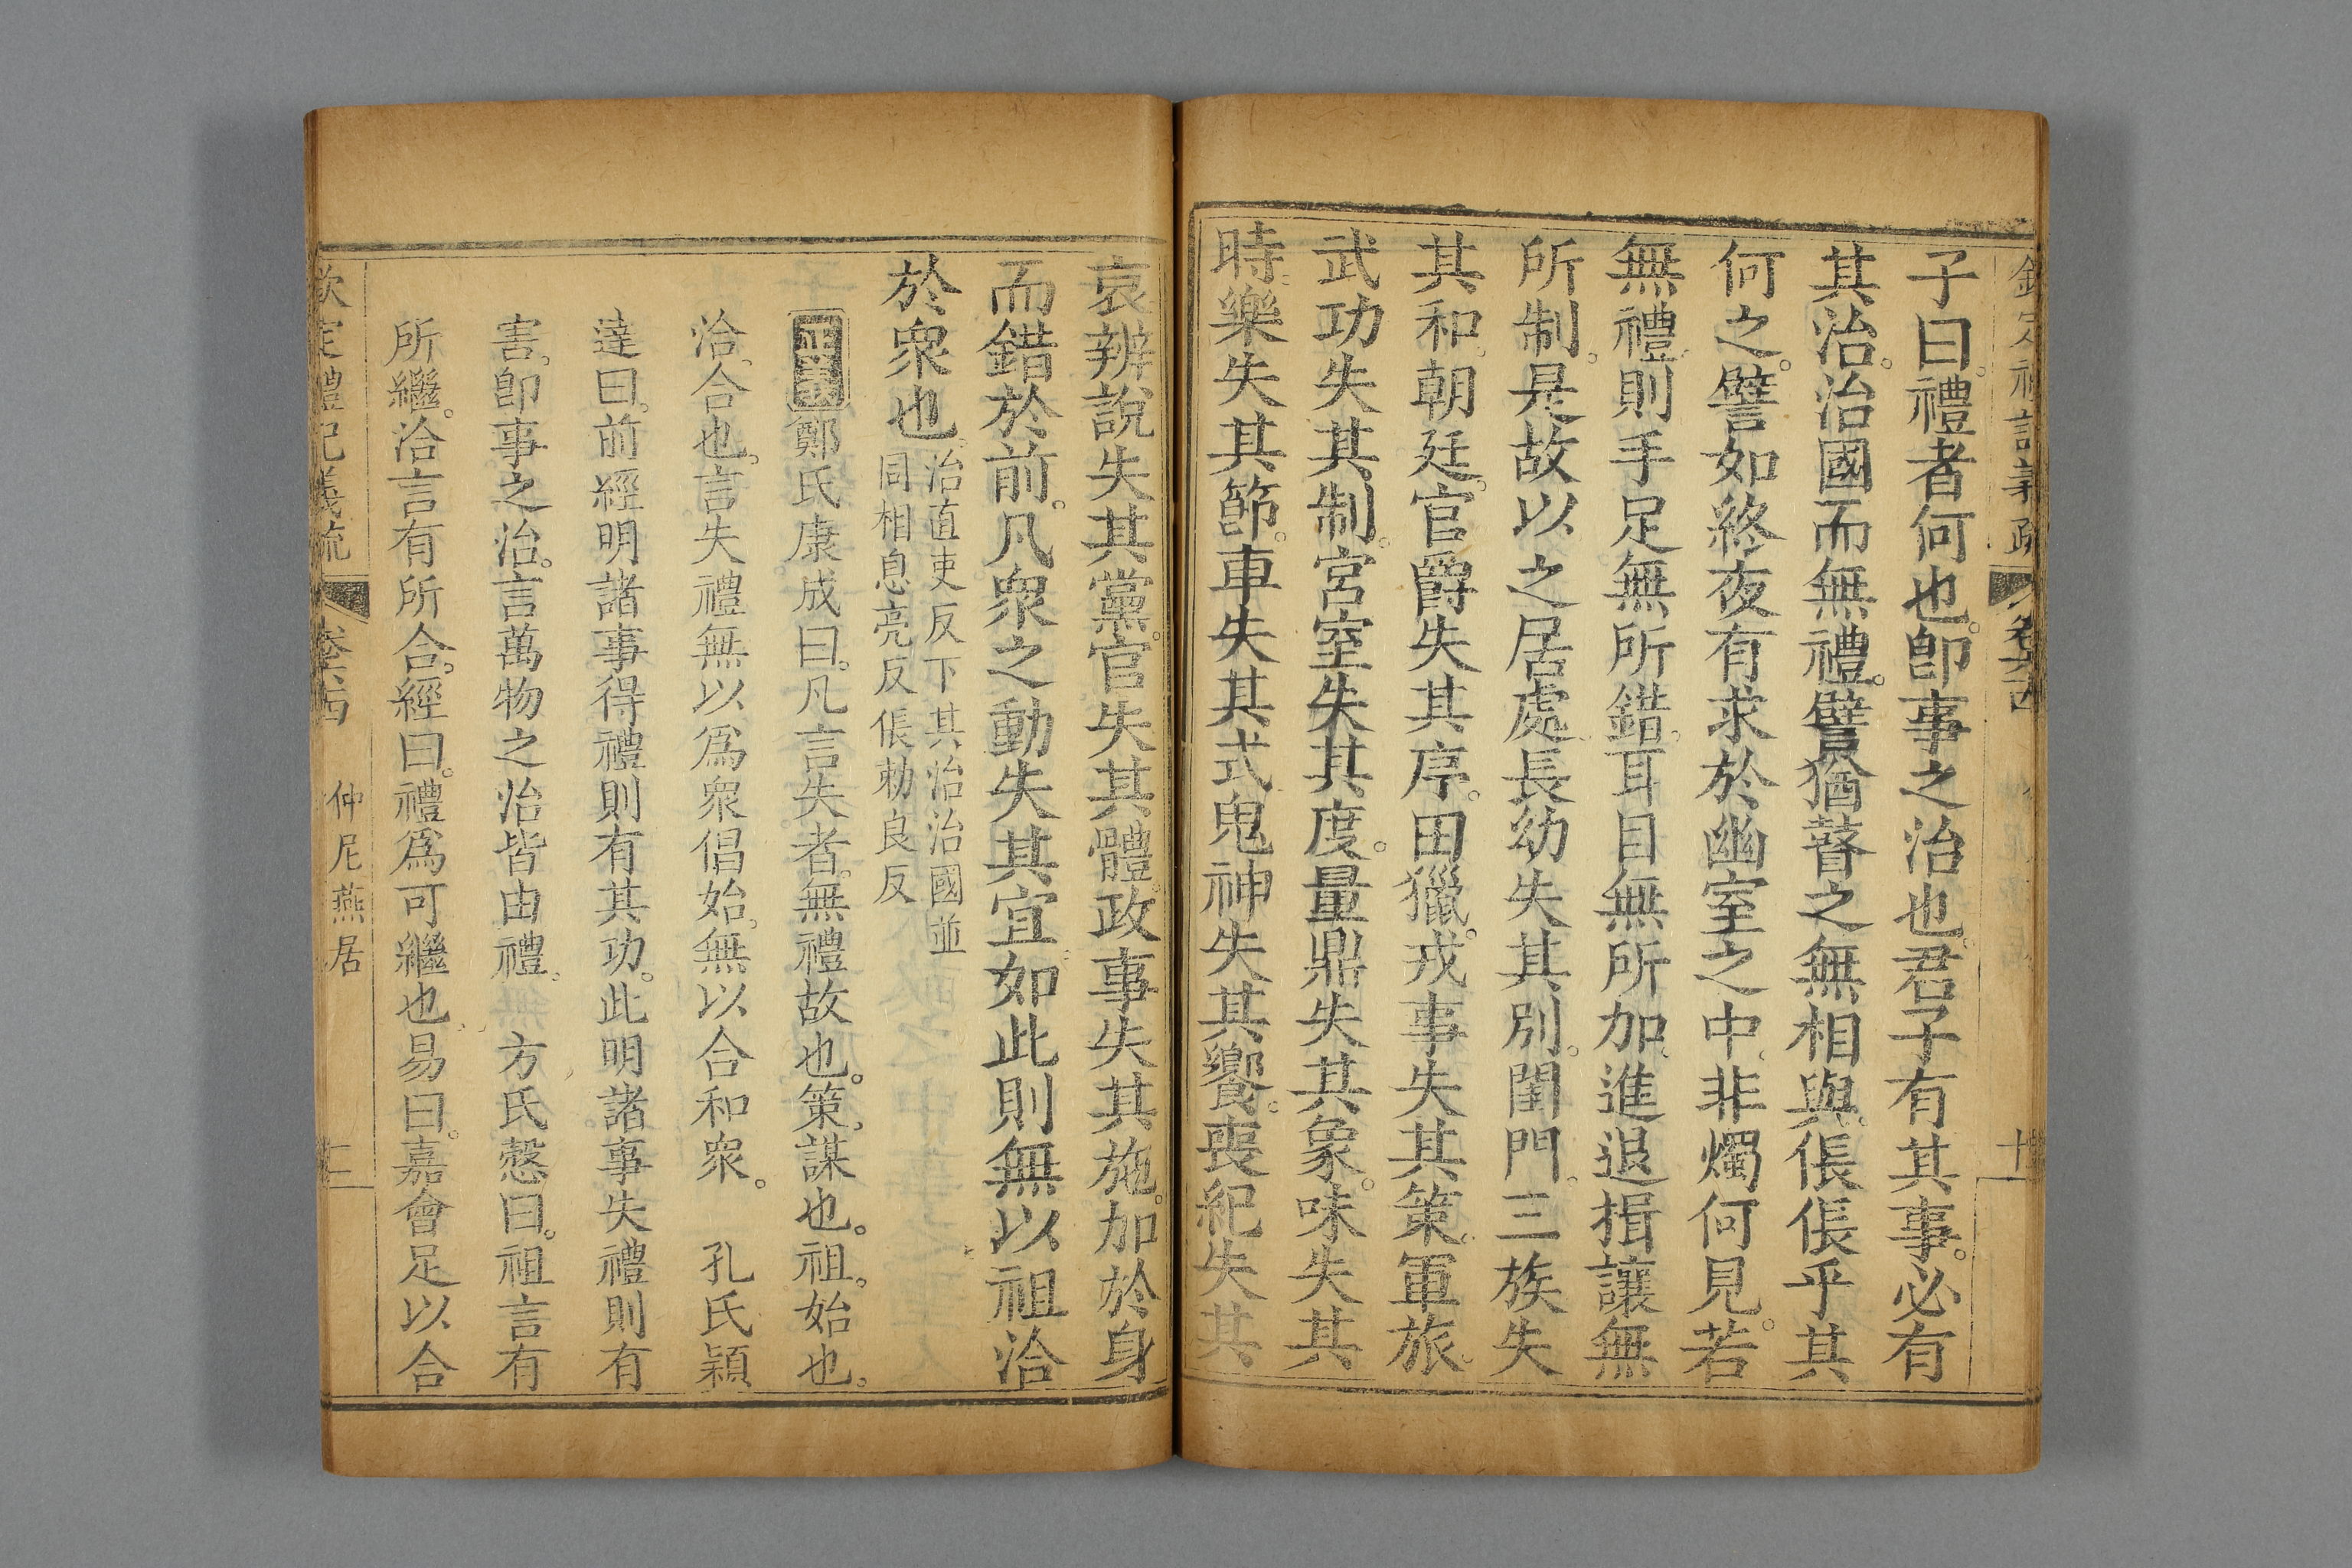 子曰。禮者何也。卽事之治也。君子有其事。必有
其治。治國而無禮。譬猶瞽之無相與。倀倀乎其
何之。譬如終夜有求於幽室之中。非燭何見。若
無禮。則手足無所錯。耳目無所加。進退揖讓無
所制。是故以之居處。長幼失其別。閨門三族失
其和。朝廷官爵失其序。田獵戎事失其策。軍旅
武功失其制。宮室失其度。量鼎失其象。味失其
時。樂失其節。車失其式。鬼神失其饗。喪紀失其
哀。辨說失其黨。官失其體。政事失其施。加於身
而錯於前。凡衆之動失其宜。如此則無以祖洽
於衆也。治直吏反下其治治國並
同相息亮反倀勑良反
正義鄭氏康成曰。凡言失者。無禮故也。策。謀也。祖。始也。
洽。合也。言失禮無以爲衆倡始。無以合和衆。 孔氏穎
達曰。前經明諸事得禮則有其功。此明諸事失禮則有
害。卽事之治。言萬物之治皆由禮。 方氏慤曰。祖言有
所繼。洽言有所合。經曰。禮爲可繼也。易曰。嘉會足以合
欽定禮記義疏 卷六十四 仲尼燕居